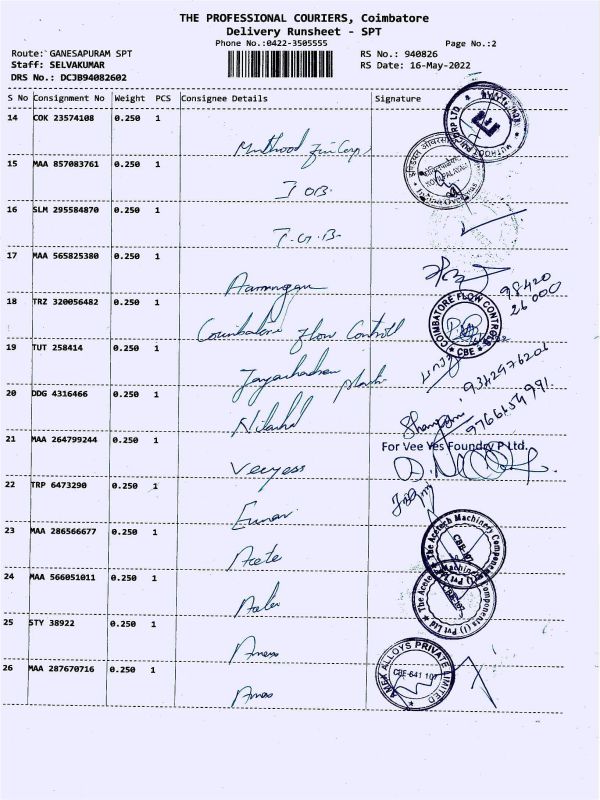 THE PROFESSIONAL COURIERS, Coimbatore
Delivery Runsheet - SPT
Phone No.:0422-3505555
Page No.:2
Route: GANESAPURAM SPT
RS No.: 940826
Staff: SELVAKUMAR
RS Date: 16-May-2022
DRS No.: DCJB94082602
S No Consignment No Weight PCS Consignee Details Signature
14 COK 23574108 0.250 1
Muthood FinCorp
15 MAA 857083761 0.250 1
IOB
16 SLM 295584870 0.250 1
T.G.B
17 MAA 565825380 0.250 1
98420
26000
18 TRZ 320056482 0.250 1
Coimbatore Flow Controll
COIMBATORE FLOW CONTROLS
CBE
19 TUT 258414 0.250 1
9342976201
20 DDG 4316466 0.250 1
9766154991
21 MAA 264799244 0.250 1
For Vee Yes Foundry P Ltd.
Veeyess
22 TRP 6473290 0.250 1
23 MAA 286566677 0.250 1
The Acetech Machinery Components (I) Pvt Ltd
Acete
24 MAA 566051011 0.250 1
The Acetech Machinery Components (I) Pvt Ltd
25 STY 38922 0.250 1
26 MAA 287670716 0.250 1
AMEX ALLOYS PRIVATE LIMITED
CBE-641 107